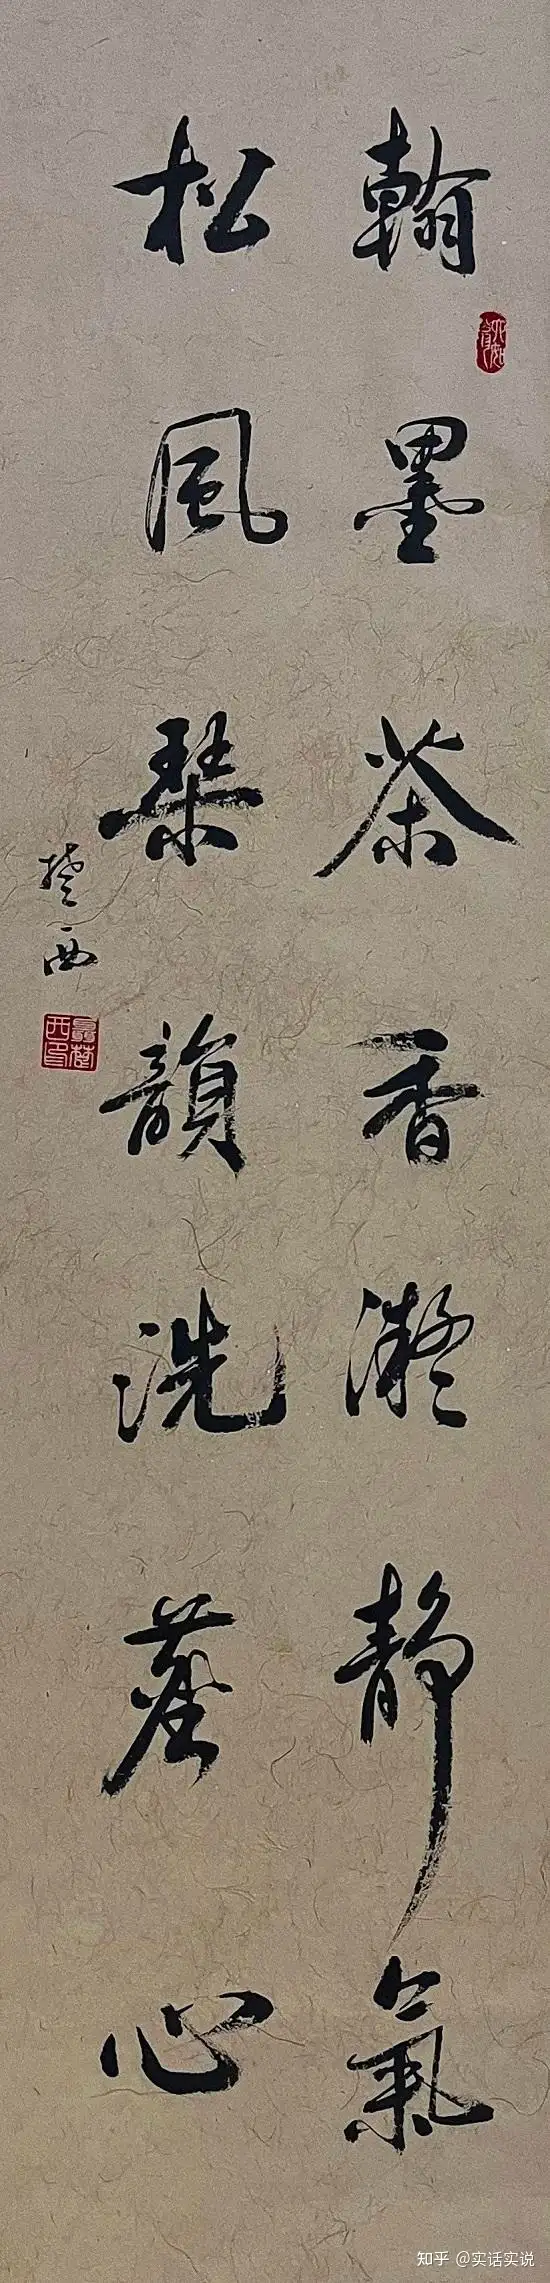 翰墨茶香凝静氣
松風琴韻洗塵心
楚西
知乎 @实话实说